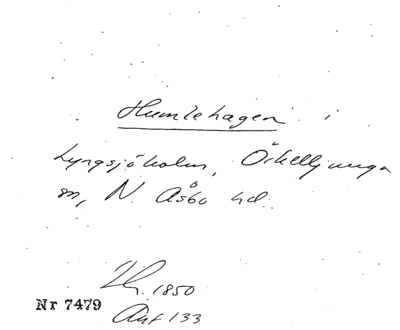 Humlehagen i
Lyngsjöholm, Örkelljunga
sn, N. Åsbo hd.
1850
Nr 7479
Ant 133